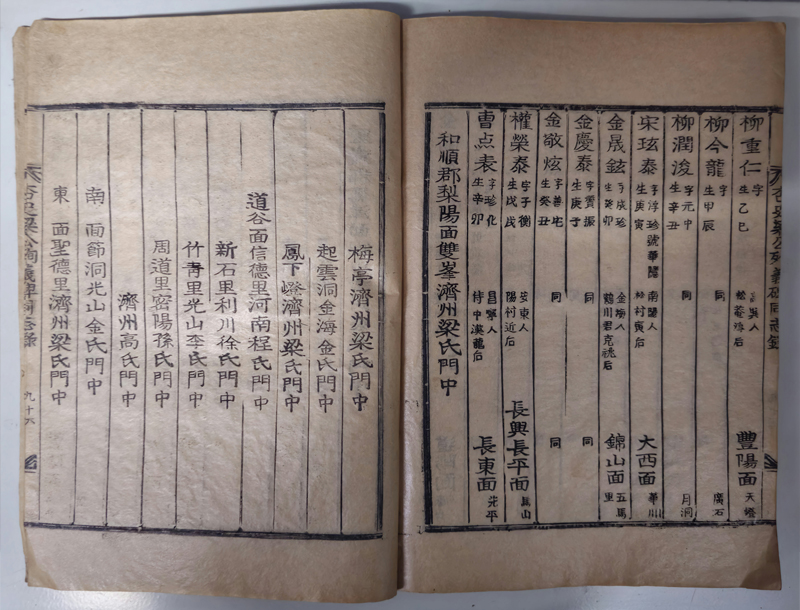 柳重仁 字 生乙巳 吳人 松菴淳后 豐陽面 天燈
柳今龍 字 生甲辰 同 廣石
柳潤浚 字元中 生辛丑 同 月洞
宋玹泰 字淳珍號華陽 生庚寅 南陽人 松村寅后 大西面 華川
金晟鉉 字成珍 生癸卯 金海人 鶴川君克祧后 錦山面 五馬里
金慶泰 字賓振 生庚子 同 同
金敬炫 字善宅 生癸丑 同 同
權榮泰 字子衡 生戊戌 安東人 陽村近后 長興長平面
曺点表 字珍化 生辛卯 昌寧人 侍中漢龍后 長東面 光平
和順郡梨陽面雙峯濟州梁氏門中
梅亭濟州梁氏門中
起雲洞金海金氏門中
鳳下嶝濟州梁氏門中
道谷面信德里河南程氏門中
新石里利川徐氏門中
竹靑里光山李氏門中
周道里密陽孫氏門中
濟州高氏門中
南面節洞光山金氏門中
東面聖德里濟州梁氏門中